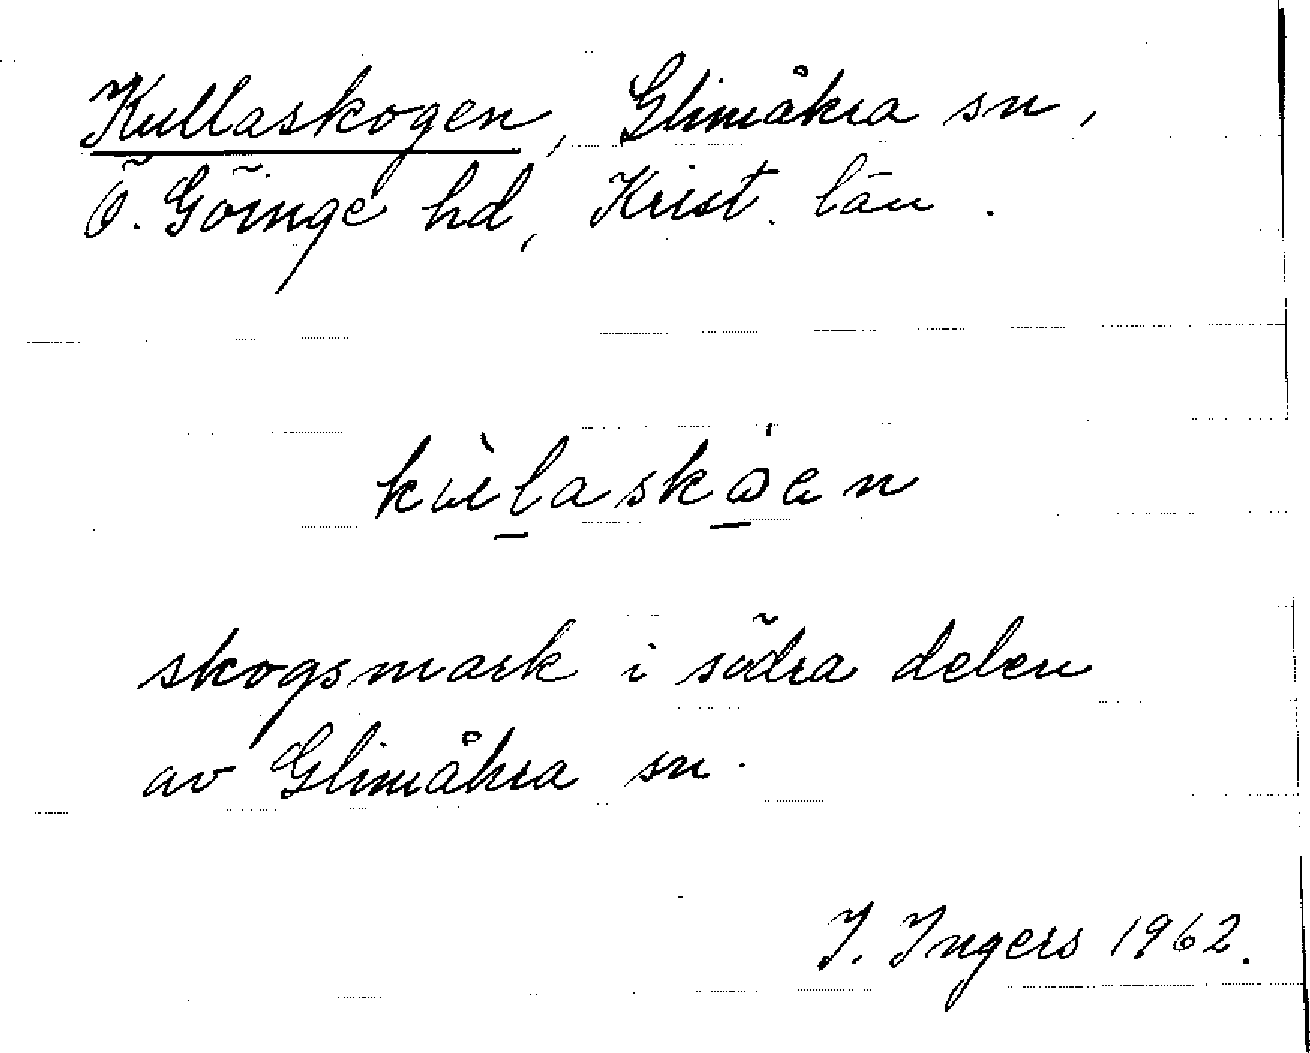 Kullaskogen, Glimåkra sn,
Ö. Göinge hd, Krist. län.
kùlaskóen
skogsmark i södra delen
av Glimåkra sn.
I. Ingers 1962.